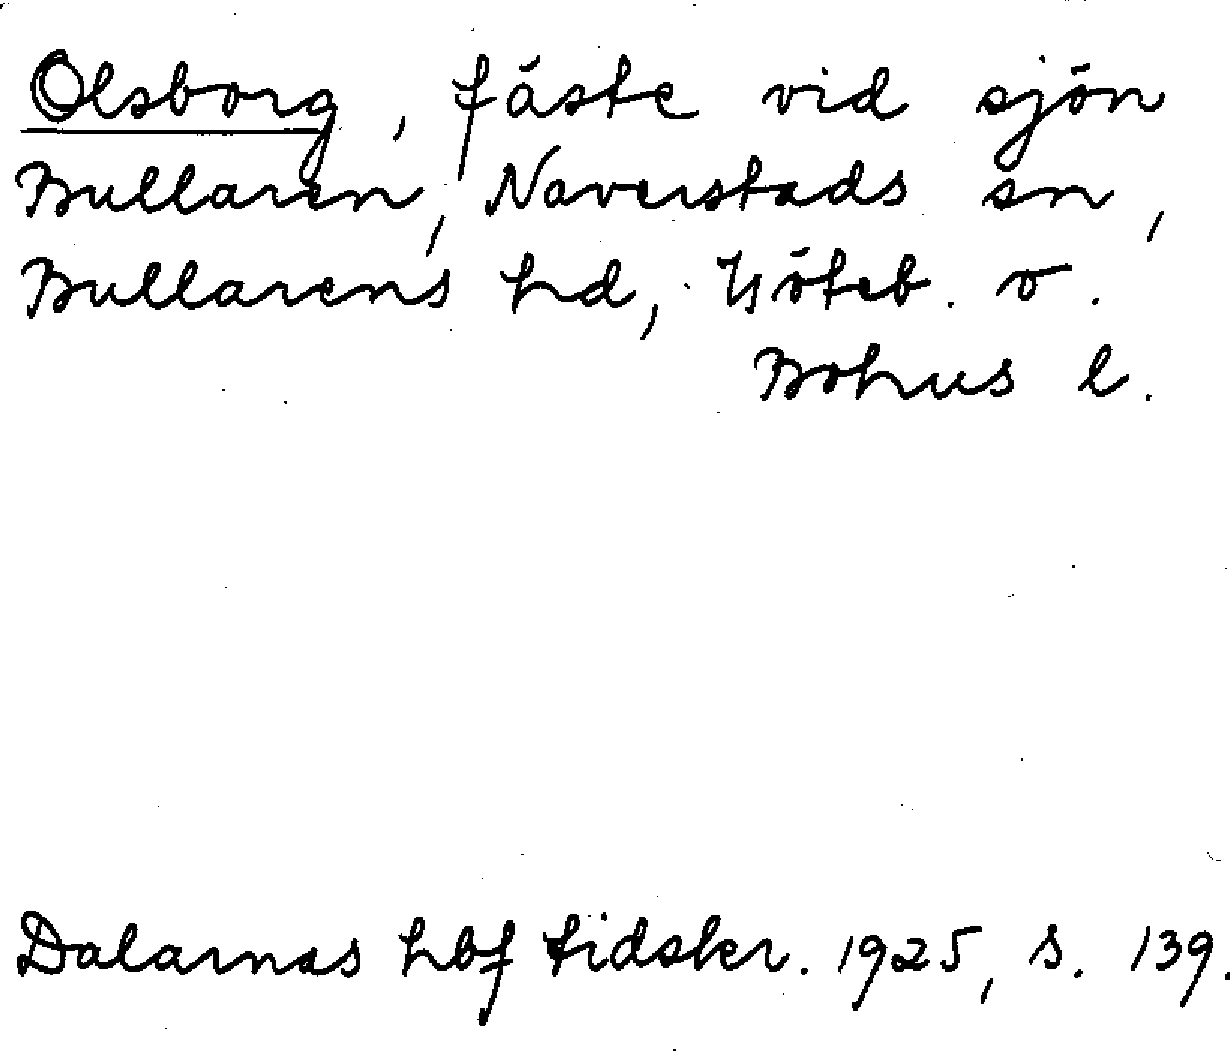 Olsborg, fäste vid sjön
Bullaren, Naverstads sn,
Bullarens hd, Göteb. o.
Bohus l.
Dalarnas hbf tidskr. 1925, s. 139.